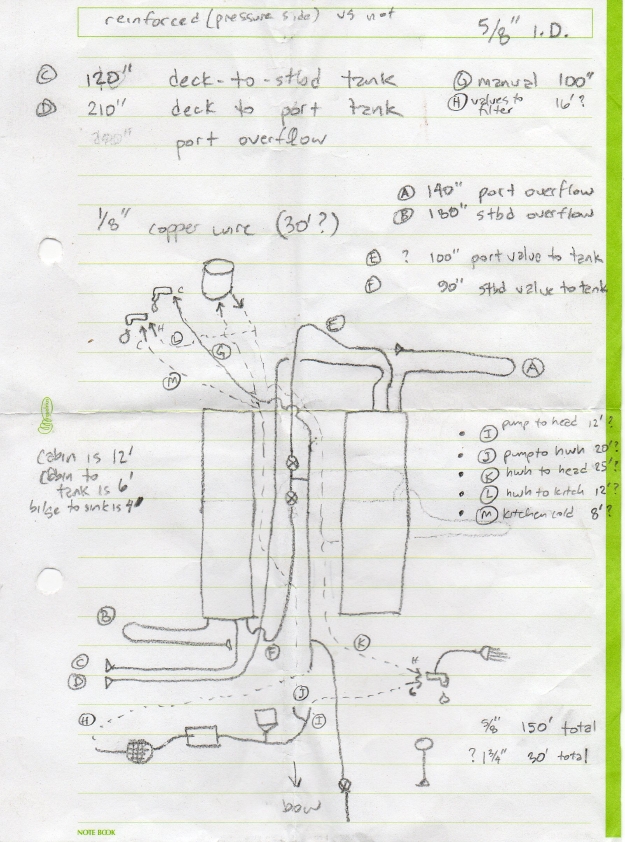 reinforced (pressure side) vs not
5/8" I.D.
C 120" deck-to-stbd tank
D 210" deck to port tank
port overflow
G manual 100"
H valves to filter 16'?
A 140" port overflow
B 180" stbd overflow
1/8" copper wire (30'?)
E ? 100" port valve to tank
F 90" stbd valve to tank
C
H
C
L
G
M
E
A
Cabin is 12'
Cabin to
tank is 6'
bilge to sink is 4'
• I pump to head 12'?
• J pump to hwh 20'?
• K hwh to head 25'?
• L hwh to kitch 12'?
• M kitchen cold 8'?
B
C
D
F
K
H
C
J
I
H
5/8" 150' total
? 1 3/4" 30' total
bow
NOTE BOOK